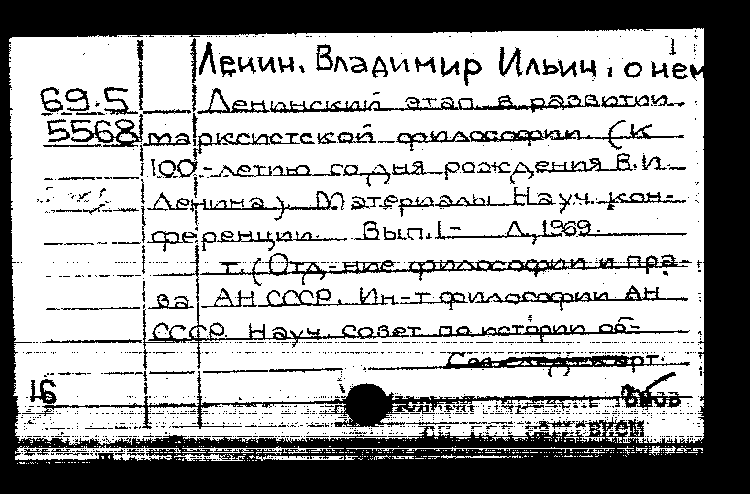 1
Ленин, Владимир Ильич, о нем
69.5 Ленинский этап в развитии
5568 марксистской философии. (К
100-летию со дня рождения В.И.
Ленина). Материалы Науч. кон-
ференции. Вып. 1- Л., 1969.
т. (Отд-ние философии и пра-
ва АН СССР. Ин-т философии АН
СССР. Науч. совет по истории об-
См. след. карт.
16